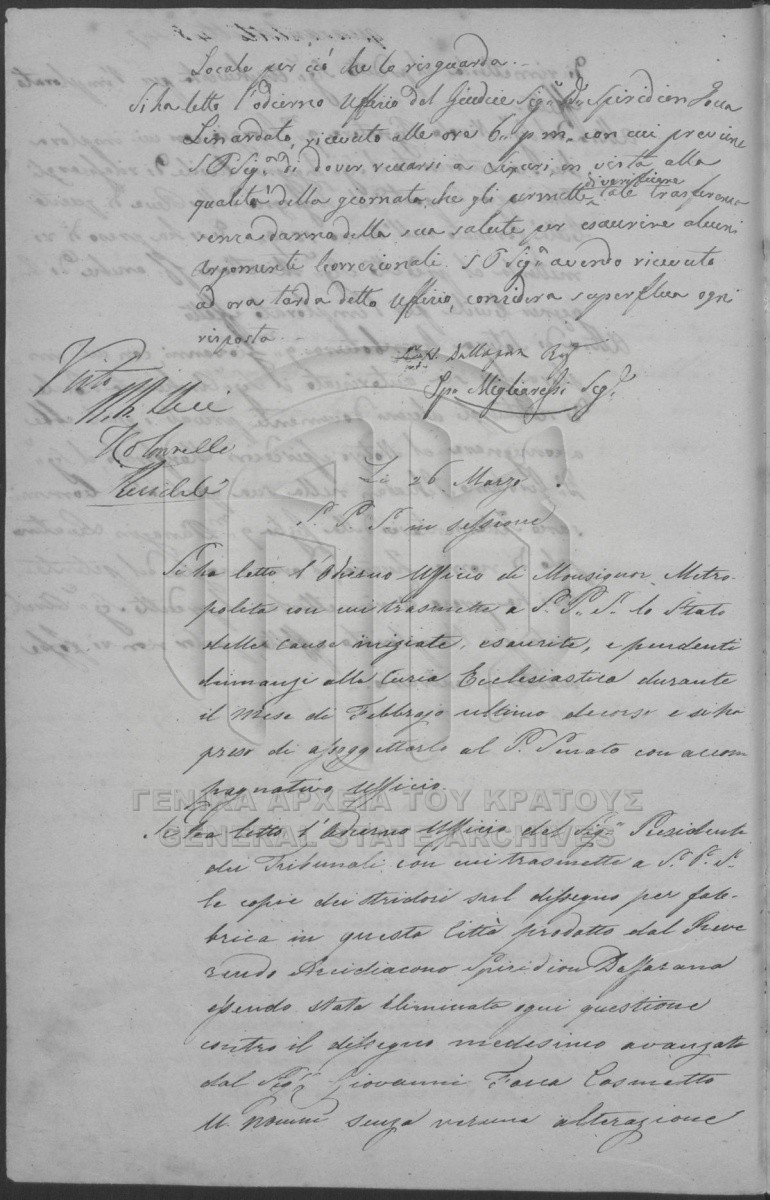 Locale per ciò che lo risguarda.
Si ha letto l'odierno Ufficio del Giudice Sigr Dr Spiridion Focca
Linardato, ricevuto alle ore 6 p. m. con cui previene
S P Sig di dover recarsi a in vista alla
qualità della giornata, che gli permette di verificare tale trasferenza
senza danno della sua salute per esaurire alcuni
argomenti Correzionali. S P Sigr avendo ricevuto
ad ora tarda detto Ufficio, considera superflua ogni
risposta.
Dallapora Regte
Spn Migliaressi Segr
Visto
Kolonnello
Residte
Li 26 Marzo.
S. P. S. in sessione
Si ha letto l'Odierno Ufficio di Monsignor Metro-
polita con cui trasmette a S. P. S. lo Stato
delle cause iniziate, esaurite, e pendenti
dinnanzi alla Curia Ecclesiastica durante
il Mese di Febbrajo ultimo decorso e si ha
preso di assoggettarlo al P. Senato con accom
pagnativo Ufficio.
ΓΕΝΙΚΑ ΑΡΧΕΙΑ ΤΟΥ ΚΡΑΤΟΥΣ
GENERAL STATE ARCHIVES
Si ha letto l'Odierno Ufficio del Sigr Presidente
dei Tribunali con cui trasmette a S. P. S.
le copie dei stridori sul dissegno per fab-
brica in questa Città prodotto dal Reve
rendo Arcidiacono Spiridion Dassarana
essendo stata eliminata ogni questione
contro il dissegno medesimo avanzata
dal Sigr Giovanni Foca Cosmetto
senza veruna alterazione